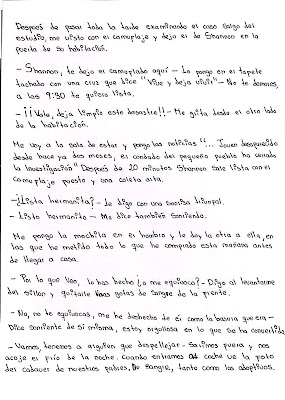 Después de pasar toda la tarde examinando el caso largo del
estudio, me visto con el camuplaje y dejo el de Shannon en la
puerta de su habitación.
- Shannon, te dejo el camuplado aquí - Lo pongo en el tapete
tachado con una cruz que dice "Vive y deja vivir" - No te demores,
a las 9:30 te quiero lista.
- ¡¡Vale, deja limpio este desastre!! - Me grita desde el otro lado
de la habitación.
Me voy a la sala de estar y pongo las noticias "... Joven desaparecido
desde hace ya dos meses, el condado del pequeño pueblo ha cerrado
la investigación" Después de 20 minutos Shannon sale lista con el
camuplaje puesto y una coleta alta.
- ¿Lista hermanita? - Le digo con una sonrisa triunfal.
- Listo hermanito - Me dice también sonriendo.
Me pongo la mochila en el hombro y le doy la otra a ella, en
las que he metido todo lo que he comprado esta mañana antes
de llegar a casa.
- Por lo que veo, lo has hecho ¿o me equivoco? - Digo al levantarme
del sillon y quitarle unas gotas de sangre de la frente.
- No, no te equivocas, me he deshecho de él como la basura que era -
Dice sonriente de si misma, estoy orgulloso en lo que se ha convertido
- Vamos, tenemos a alguien que despellejar - Salimos fuera y nos
acoje el frío de la noche. Cuando entramos al coche veo la foto
del cadaver de nuestros padres, de sangre, tanto como los adoptivos.